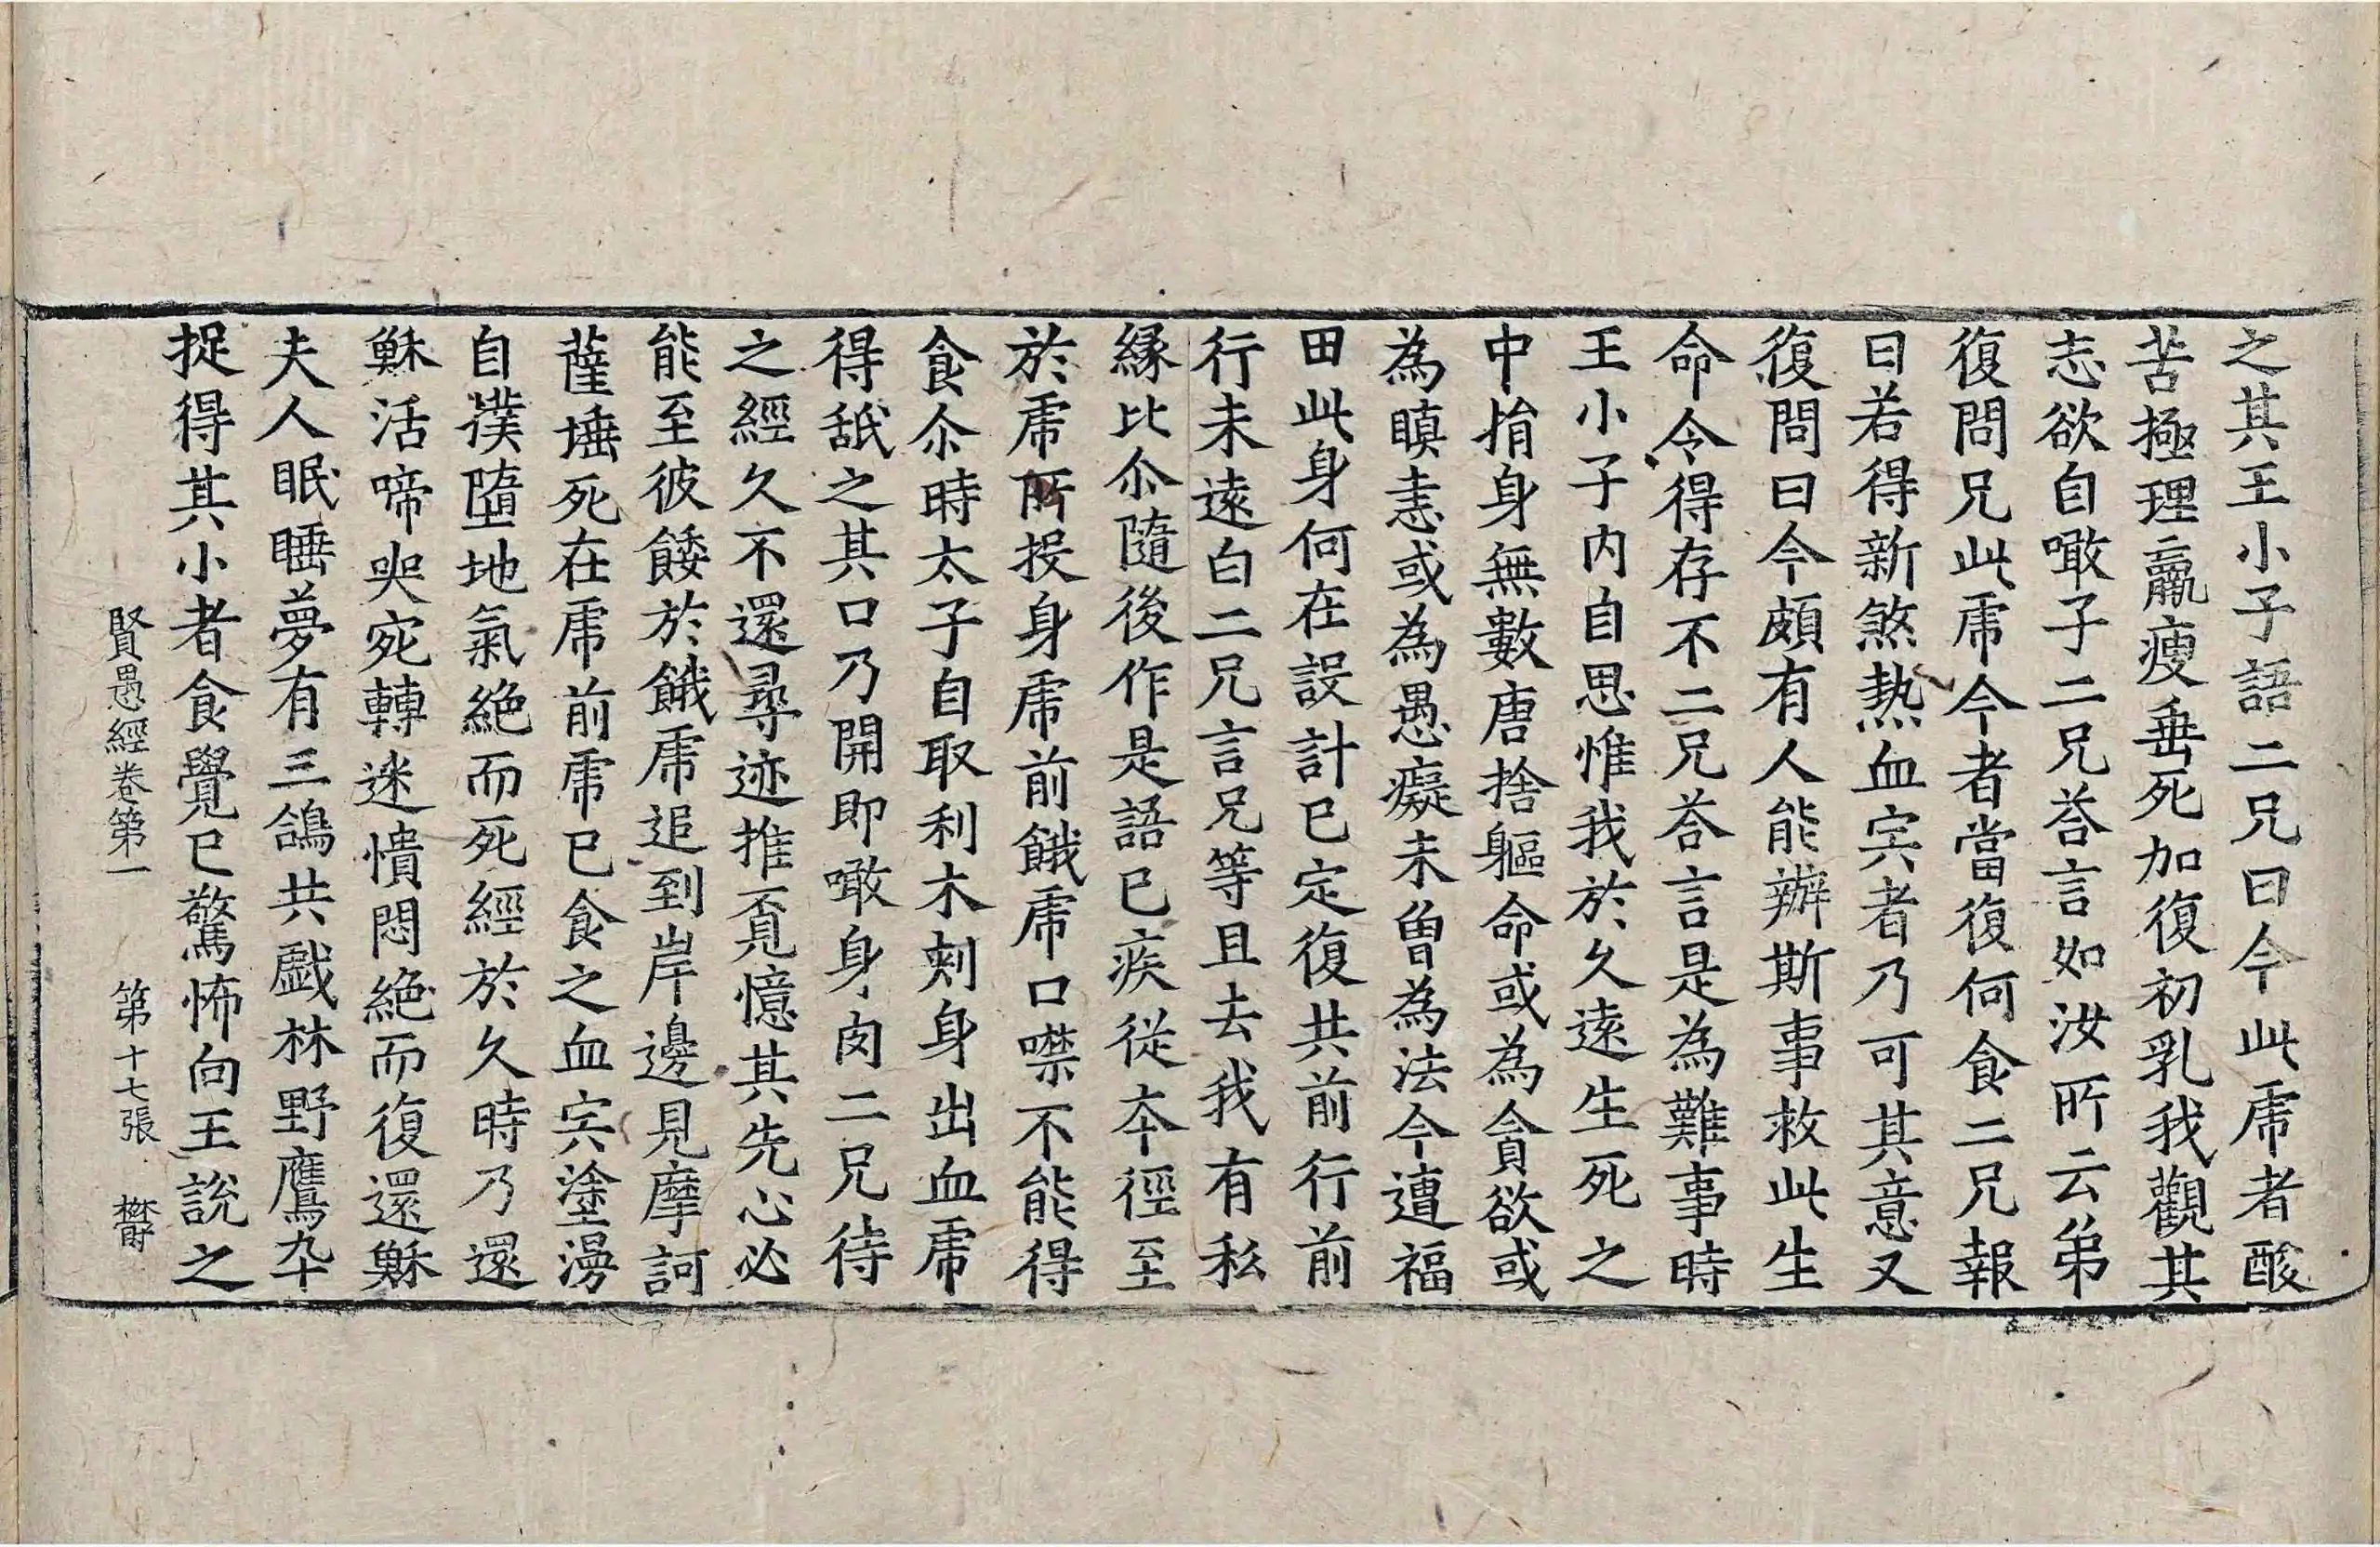 之其王小子語二兄曰今此虎者酸
苦極理羸瘦垂死加復初乳我觀其
志欲自噉子二兄荅言如汝所云弟
復問兄此虎今者當復何食二兄報
曰若得新煞熱血宍者乃可其意又
復問曰今頗有人能辦斯事救此生
命令得存不二兄荅言是為難事時
王小子内自思惟我於久遠生死之
中捐身無數唐捨軀命或為貪欲或
為瞋恚或為愚癡未曾為法今遭福
田此身何在設計已定復共前行前
行未遠白二兄言兄等且去我有私
緣比尒隨後作是語已疾從本徑至
於虎所投身虎前餓虎口噤不能得
食尒時太子自取利木刺身出血虎
得舐之其口乃開即噉身肉二兄待
之經久不還尋迹推覓憶其先心必
能至彼餧於餓虎追到岸邊見摩訶
薩埵死在虎前虎已食之血宍塗漫
自撲墮地氣絕而死經於久時乃還
穌活啼哭宛轉迷憒悶絕而復還穌
夫人眠睡夢有三鴿共戲林野鷹卒
捉得其小者食覺已驚怖向王說之
賢愚經卷第一　第十七張　欝